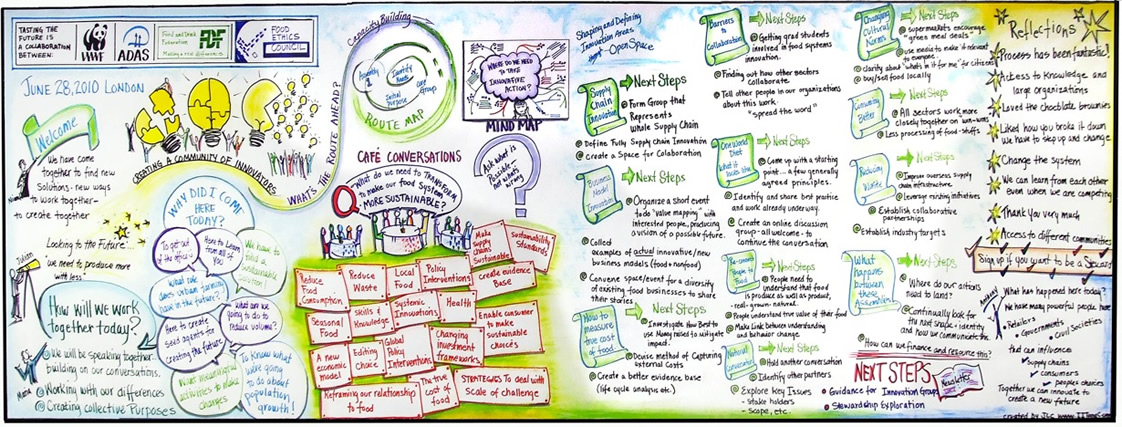 TASTING THE
FUTURE IS
A COLLABORATION
BETWEEN:
WWF
ADAS
Food and Drink
Federation
FDF
FOOD
ETHICS
COUNCIL
JUNE 28, 2010 LONDON
Welcome
We have come
together to find new
Solutions - new ways
to work together -
to create together
CREATING A COMMUNITY OF INNOVATORS
WHAT'S THE ROUTE AHEAD?
Looking to the Future:
"we need to produce more
with less."
Julian
How will we work
together today?
We will be speaking together -
building on our conversations.
Working with our differences
Creating collective Purposes
WHY DID I COME
HERE TODAY?
To get out
of the office
How to Learn
from all of
you
We have to
build a
sustainable
What role
does urban farming
have in the future?
Here to create
seed agents for
creating the future
what are we
going to do to
reduce volume?
What meaningful
activities to make
changes
To Know what
we're going
to do about
population
growth!
Capacity Building
Assembly
1
Identify
Need
Initial
purpose
Core
Group
ROUTE MAP
WHERE DO WE NEED
TO TAKE
INNOVATIVE
ACTION?
MIND MAP
CAFÉ CONVERSATIONS
What do we need to TRANSFORM
to make our food system
MORE SUSTAINABLE?
Ask what is
Possible -
not what's
wrong
Make
supply
chains
Sustainable
Sustainability
Standards
Reduce
Food
Consumption
Reduce
Waste
Local
Food
Policy
Interventions
create evidence
Base
Seasonal
Food
Skills &
Knowledge
Systemic
Innovations
Health
Enable consumer
to make
sustainable
choices
A new
economic
model
Editing
Choice
Global
Policy
Interventions
Changing
investment
frameworks
Reframing our relationship
to food
The true
cost of
food
STRATEGIES To deal with
Scale of challenge
Shaping and Defining
Innovation Areas
- Open Space
Supply
Chain
Innovation
Next Steps
Form Group that
Represents
whole Supply Chain
Define Fully Supply Chain Innovation
Create a Space for Colaboration
Business
Model
Innovation
Next Steps
Organize a short event
to do "value mapping" with
interested people, producing
a vision of a possible future.
Collect
examples of actual innovative/new
business models (food + nonfood)
Convene space/event for a diversity
of existing food businesses to share
their stories
How to
measure
true cost
of food
Next Steps
Investigate How Best to
use Money raised to mitigate
impact.
Devise method of Capturing
External costs
Create a better evidence base
(life cycle analysis etc.)
Barriers
to
Collaboration
Next Steps
Getting grad students
involved in food systems
innovation.
Finding out how other
sectors collaborate
Tell other people in our organizations
about this work.
"spread the word"
One World
Diet
What it
looks like
Next Steps
Come up with a starting
point ... a few generally
agreed principles.
Identify and share best practice
and work already underway.
Create an online discussion
group - all welcome - to
continue the conversation
Next Steps
People need to
understand that food
is produce as well as product,
- real - grown - natural.
People understand true value of their food
Make Link between understanding
and behavior change.
Next Steps
Hold another conversation
Identify other partners
Explore Key Issues
- stake holders
- scope, etc.
Changing
Cultural
Norms
Next Steps
supermarkets encourage
green meal deals
use media to make it relevant
to everyone
clarity about "what's in it for me" for citizens
buy/sell food locally
Consuming
Better
Next Steps
All sectors work more
closely together on win-wins
Less processing of food-stuffs
Reducing
Waste
Next Steps
Improve overseas supply
chain infrastructure
Leverage existing initiatives
Establish collaborative
partnerships
Establish industry targets
What
happens
between
these
Assemblies
Next Steps
Where do our actions
need to land?
Continually look for
the next shape + identity
and how we communicate
How can we finance and resource this?
NEXT STEPS
Newsletter
Guidance for Innovation Groups
Stewardship Exploration
Reflections
Process has been fantastic!
Access to Knowledge and
large organizations
Loved the chocolate brownies
Liked how you broke it down
We have to step up and change
Change the system
We can learn from each other
even when we are competing
Thank you very much
Access to different communities
Sign up if you want to be a Steward
What has happened here today?
We have many powerful people here
Retailers
Governments
civil societies
that can influence
supply chains
consumers
peoples choices
Together we can innovate to
create a new future